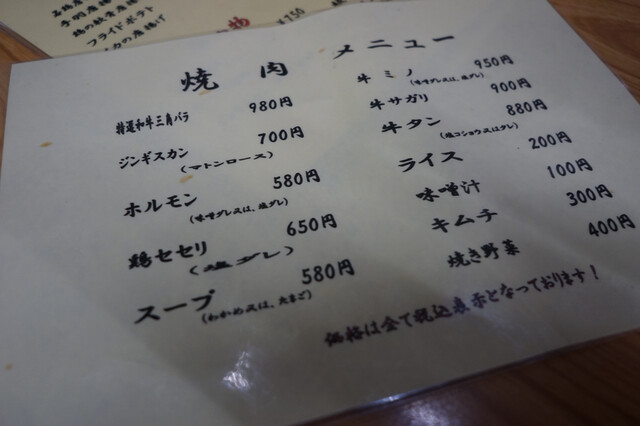 手羽唐揚
鶏の軟骨唐揚
フライドポテト
イカの唐揚げ
物
¥750
焼肉 メニュー
特選和牛三角バラ 980円
ジンギスカン 700円
(マトンロース)
ホルモン 580円
(味噌ダレ又は、塩ダレ)
鶏セセリ 650円
(塩ダレ)
スープ 580円
(わかめ又は、たまご)
牛ミノ 950円
(味噌ダレ又は、塩ダレ)
牛サガリ 900円
牛タン 880円
(塩コショウ又はタレ)
ライス 200円
味噌汁 100円
キムチ 300円
焼き野菜 400円
価格は全て税込表示となっております!